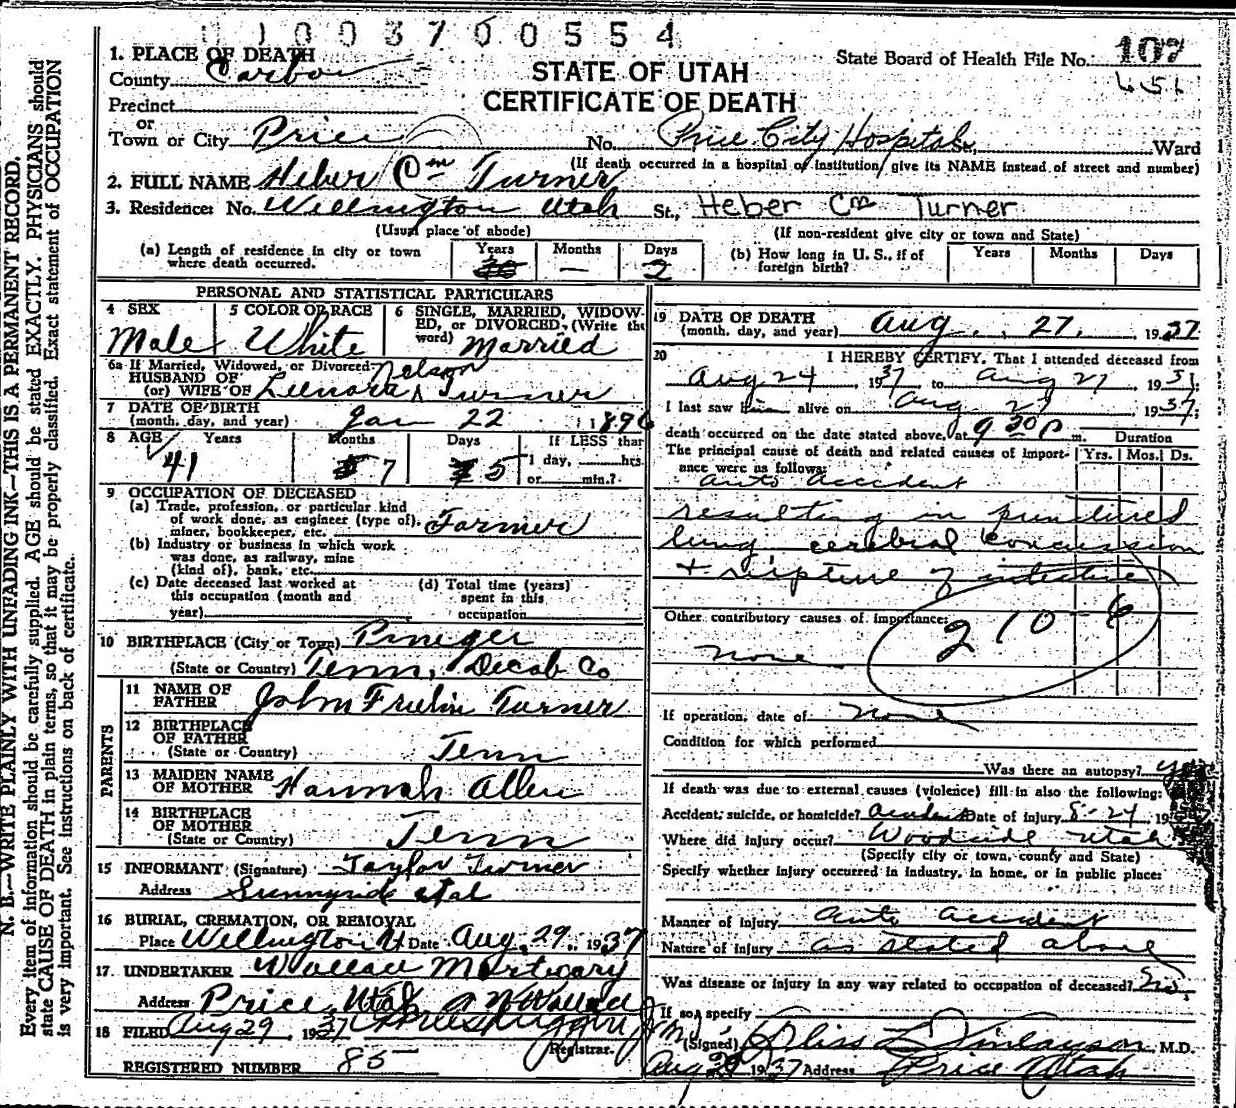 1003700554
1. PLACE OF DEATH
County Carbon
State Board of Health File No. 107
STATE OF UTAH
CERTIFICATE OF DEATH
Precinct
or
Town or City Price No. Price City Hospital St. Ward
(If death occurred in a hospital or institution, give its NAME instead of street and number)
2. FULL NAME Heber Cm Turner
3. Residence: No. Wellington Utah St., Heber Cm Turner
(Usual place of abode) (If non-resident give city or town and State)
(a) Length of residence in city or town where death occurred. Years Months — Days 2
(b) How long in U. S., if of foreign birth? Years Months Days
PERSONAL AND STATISTICAL PARTICULARS
4 SEX Male
5 COLOR OR RACE White
6 SINGLE, MARRIED, WIDOWED, or DIVORCED, (Write the word) Married
6a If Married, Widowed, or Divorced Nelson
HUSBAND OF
(or) WIFE OF Leenora Turner
7 DATE OF BIRTH
(month, day, and year) Jan 22 1896
8 AGE Years 41 Months 7 Days 5 If LESS than 1 day, hrs. or min.?
9 OCCUPATION OF DECEASED
(a) Trade, profession, or particular kind
of work done, as engineer (type of),
miner, bookkeeper, etc. Farmer
(b) Industry or business in which work
was done, as railway, mine
(kind of), bank, etc.
(c) Date deceased last worked at
this occupation (month and
year)
(d) Total time (years)
spent in this
occupation
10 BIRTHPLACE (City or Town)
(State or Country) Tenn, Decab Co
PARENTS
11 NAME OF
FATHER John Turner
12 BIRTHPLACE
OF FATHER
(State or Country) Tenn
13 MAIDEN NAME
OF MOTHER Hannah Allen
14 BIRTHPLACE
OF MOTHER
(State or Country) Tenn
15 INFORMANT (Signature) Taylor Turner
Address Sunnyside Utah
16 BURIAL, CREMATION, OR REMOVAL
Place Wellington Ut Date Aug. 29, 1937
17 UNDERTAKER Wallace Mortuary
Address Price, Utah
18 FILED Aug 29, 1937
Registrar.
REGISTERED NUMBER 85
19 DATE OF DEATH
(month, day, and year) Aug. 27, 1937
20 I HEREBY CERTIFY, That I attended deceased from
Aug 24, 1937 to Aug 27, 1937;
I last saw him alive on Aug 27 1937;
death occurred on the date stated above, at 9 30 P m.
The principal cause of death and related causes of importance were as follows:
Duration
Yrs. Mos. Ds.
auto accident
resulting in punctured
lung, cerebral concussion
+ rupture of intestine
Other contributory causes of importance:
210-6
none
If operation, date of none
Condition for which performed
Was there an autopsy? yes
If death was due to external causes (violence) fill in also the following:
Accident, suicide, or homicide? Accident Date of injury 8-24 19
Where did injury occur? Woodside Utah
(Specify city or town, county and State)
Specify whether injury occurred in industry, in home, or in public place:
Manner of injury auto accident
Nature of injury as stated above
Was disease or injury in any way related to occupation of deceased? No.
If so, specify
(Signed) M.D.
Aug 1937 Address Price Utah
N. B.—WRITE PLAINLY WITH UNFADING INK—THIS IS A PERMANENT RECORD.
Every item of information should be carefully supplied. AGE should be stated EXACTLY. PHYSICIANS should
state CAUSE OF DEATH in plain terms, so that it may be properly classified. Exact statement of OCCUPATION
is very important. See instructions on back of certificate.